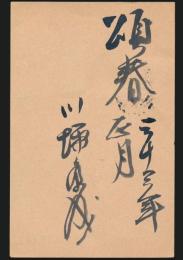 頌春
二十三年
正月
川端康成